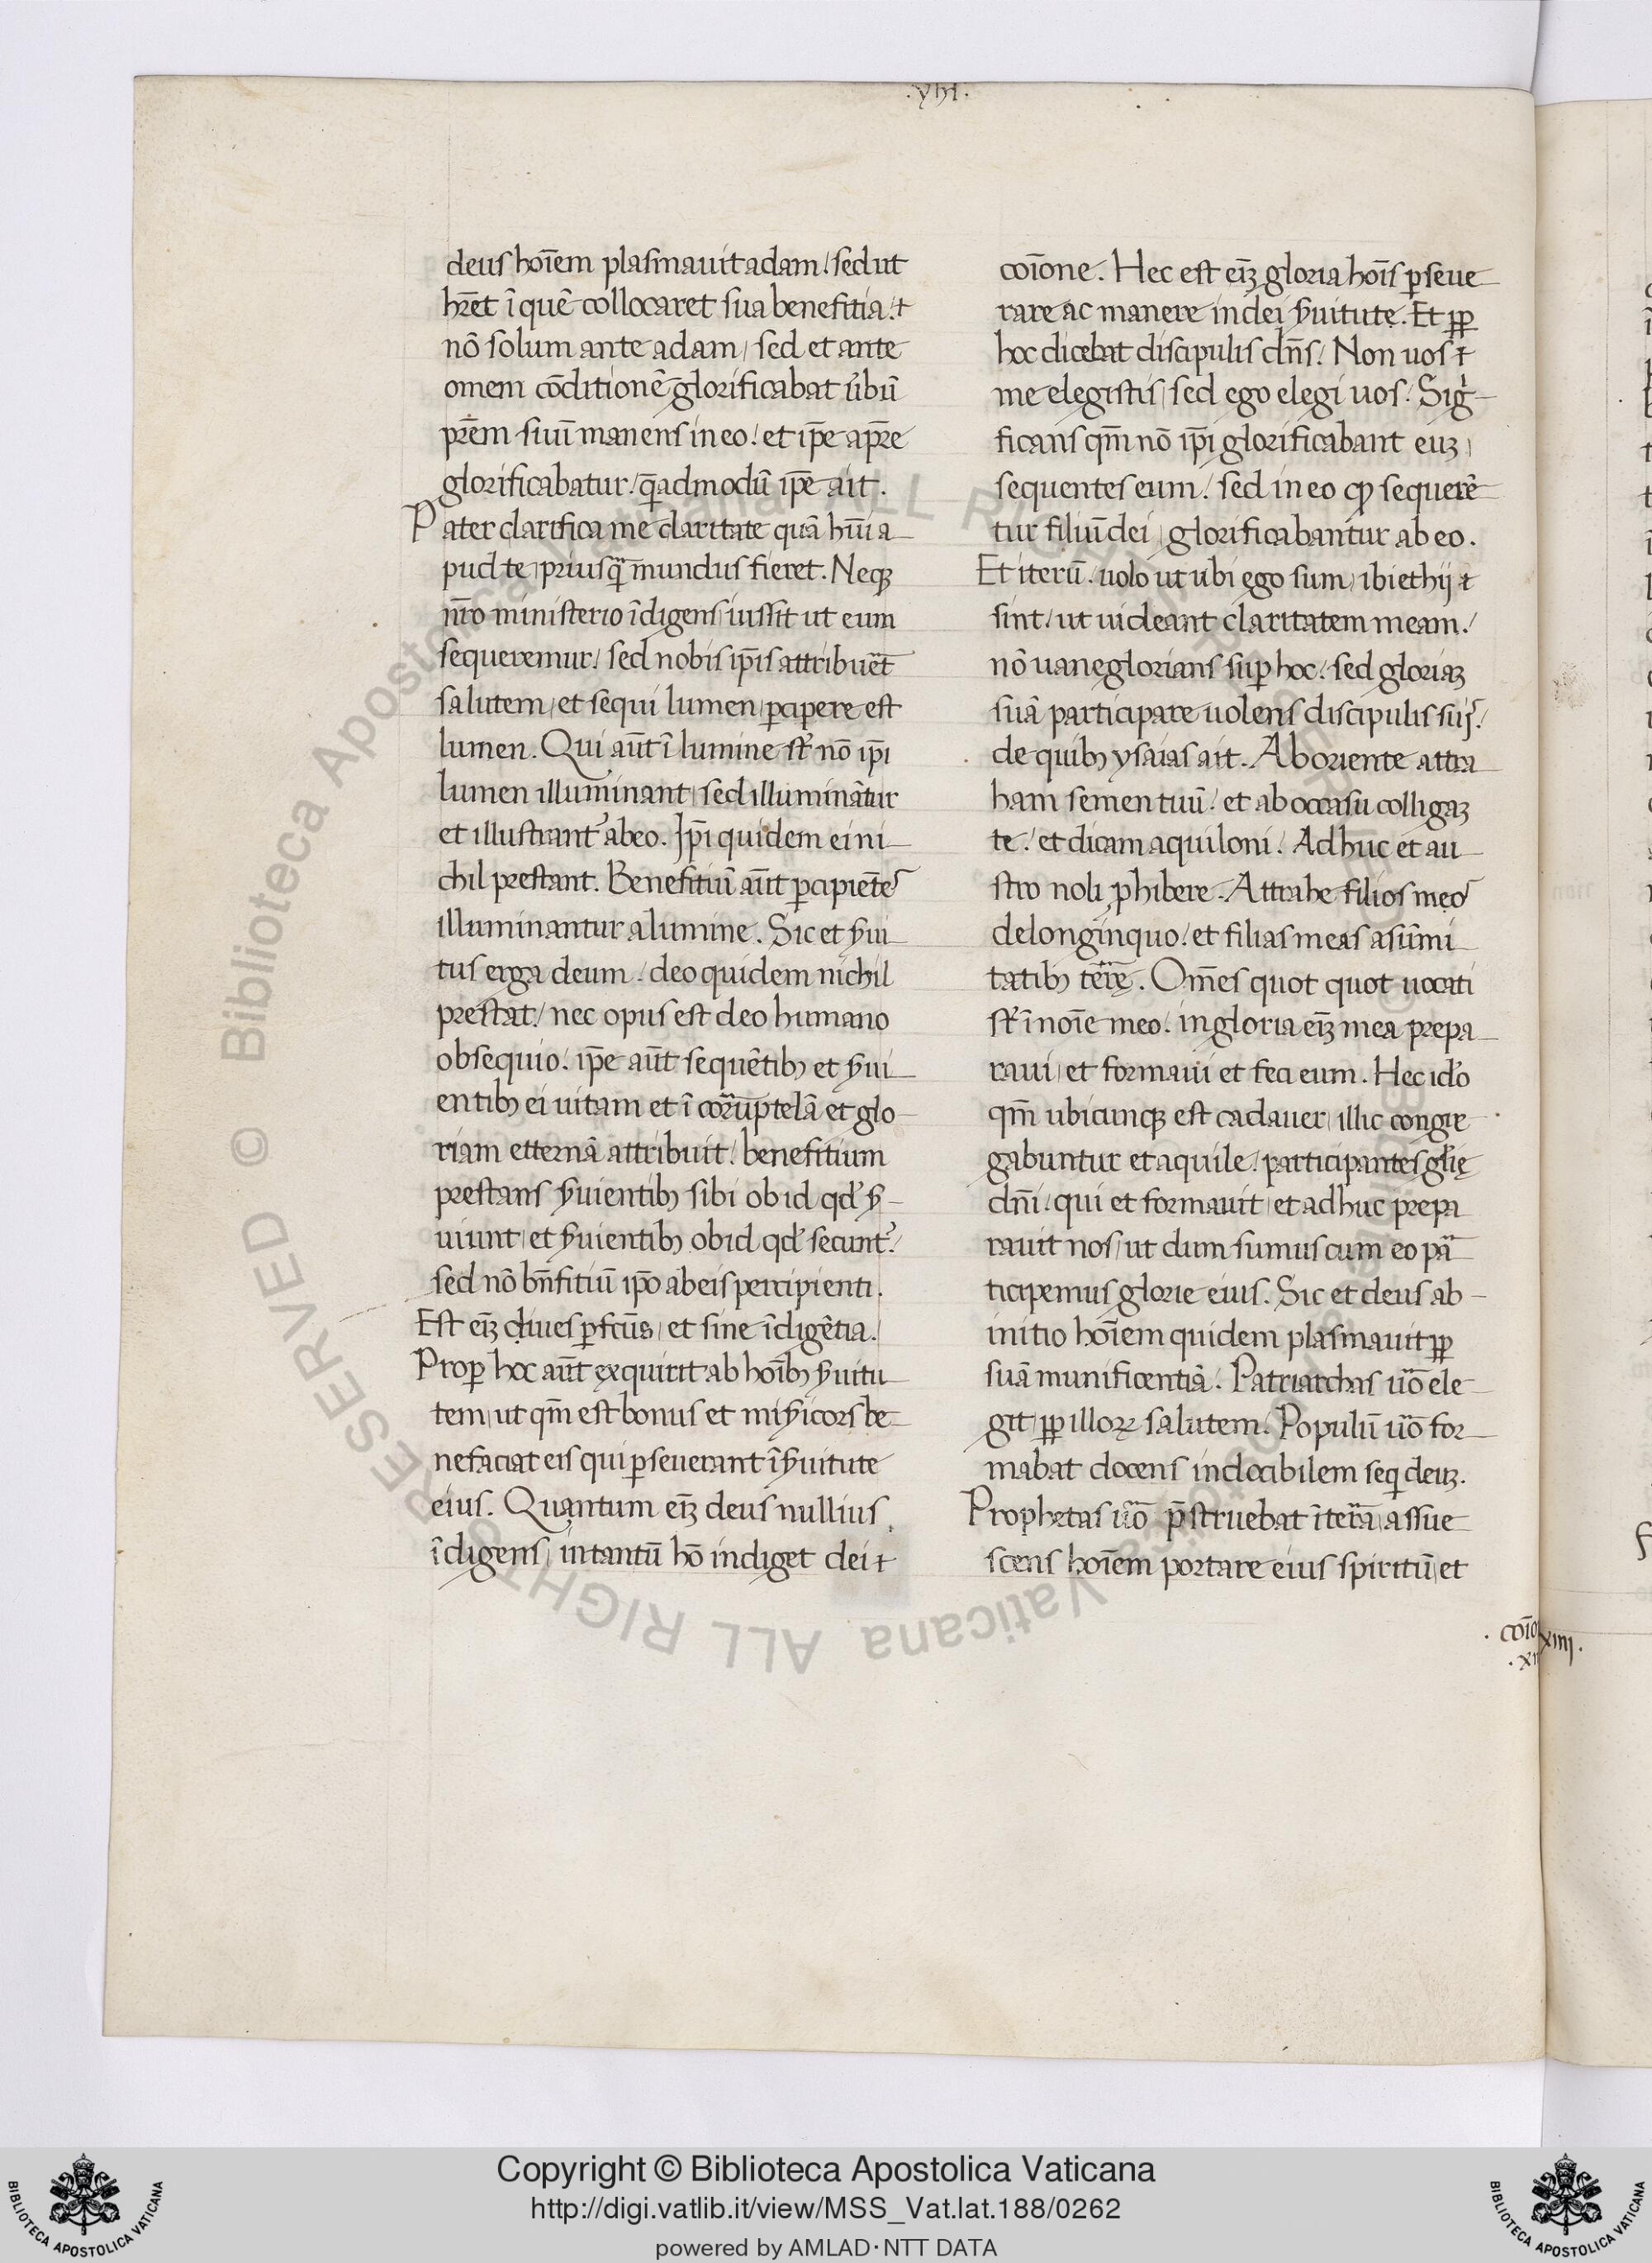 .yhi.
deus hoīem plasmauit adam! sed ut
hr̄et ī quē collocaret sua benefitia!
nō solum ante adam, sed et ante
omem cōditionē glorificabat ūbū
pr̄em suuī manens in eo! et ip̄e a pr̄e
glorificabatur! q̄admodū ip̄e ait.
Pater clarifica me claritate quā hūi a
pud te, priusq̄ mundus fieret. Neqꝫ
nr̄o ministerio īdigens iussit ut eum
sequeremur! sed nobis ip̄is attribuēt
salutem, et sequi lumen, ꝑcipere est
lumen. Qui aūt ī lumine st̄ nō ip̄i
lumen illuminant, sed illuminātur
et illustrant᷑ ab eo. Ip̄i quidem ei ni
chil prestant. Benefitiuī aūt ꝑcipiētes
illuminantur a lumine. Sic et ẜui
tus erga deum! deo quidem nichil
prestat! nec opus est deo humano
obsequio! ip̄e aūt sequētibꝫ et ẜui
entibꝫ ei uitam et ī corruptelā et glo
riam etternā attribuit! benefitium
prestans ẜuientibꝫ sibi ob id qd̓ ẜ
uiunt, et ẜuientibꝫ ob id qd̓ secunt᷑!
sed nō bn̄fitiū ip̄o ab eis percipienti.
Est eīꝫ diues ꝑfcūs, et sine īdigētia.
Proꝑ hoc aūt exquirit ab hoībꝫ ẜuitu
tem, ut qm̄ est bonus et miẜicors be
nefaciat eis qui ꝑseuerant ī ẜuitute
eius. Quantum eīꝫ deus nullius
īdigens, intantū hō indiget dei
coīone. Hec est eīꝫ gloria hoīs ꝑseue
rare ac manere in dei ẜuitute. Et ꝓꝑ
hoc dicebat discipulis dn̄s! Non uos
me elegistis, sed ego elegi uos! Sig
ficans qm̄ nō ip̄i glorificabant euꝫ,
sequentes eum! sed in eo qꝫ sequerē
tur filiū dei, glorificabantur ab eo.
Et iterū! uolo ut ubi ego sum, ibi et hij
sint! ut uideant claritatem meam!
nō uane glorians suꝑ hoc! sed gloriaꝫ
suā participare uolens discipulis suis!
de quibꝫ ysaias ait. Ab oriente attra
ham semen tuū! et ab occasu colligaꝫ
te! et dicam aquiloni! Adhuc et au
stro noli ꝓhibere. Attrahe filios meos
de longinquo! et filias meas a sūmi
tatibꝫ terrę. Om̄es quot quot uocati
st̄ ī noīe meo! in gloria eīꝫ mea prepa
raui, et formaui et feci eum. Hec id̓o
qm̄ ubicunqꝫ est cadauer, illic congre
gabuntur et aquile! participantes glīę
dn̄i! qui et formauit, et adhuc prepa
rauit nos, ut dum sumus cum eo pā
ticipemus glorie eius. Sic et deus ab
initio hoīem quidem plasmauit ꝓꝑ
suā munificentiā. Patriarchas ūo ele
git, ꝓꝑ illoꝝ salutem. Populū ūo for
mabat docens indocibilem seqi deuꝫ.
Prophetas ūo p̄struebat ī terrā, assue
scens hoīem portare eius spiritū, et
. coīo
xiiij.
.xi
© Biblioteca Apostolica Vaticana ALL RIGHTS RESERVED
Copyright © Biblioteca Apostolica Vaticana
http://digi.vatlib.it/view/MSS_Vat.lat.188/0262
powered by AMLAD·NTT DATA
BIBLIOTECA APOSTOLICA VATICANA
BIBLIOTECA APOSTOLICA VATICANA